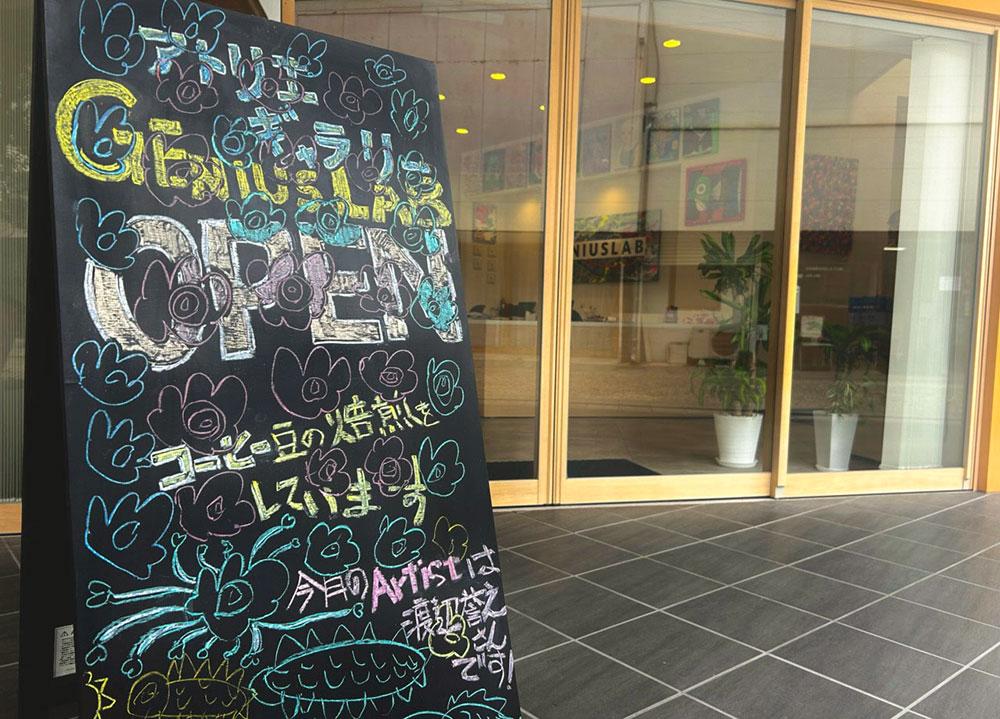 アトリエ
ぎゃラリー
GENiUS LAB
OPEN
コーヒー豆の焙煎を
しています
今月のArtistは
渡辺誉え
さん
です!
NIUSLAB